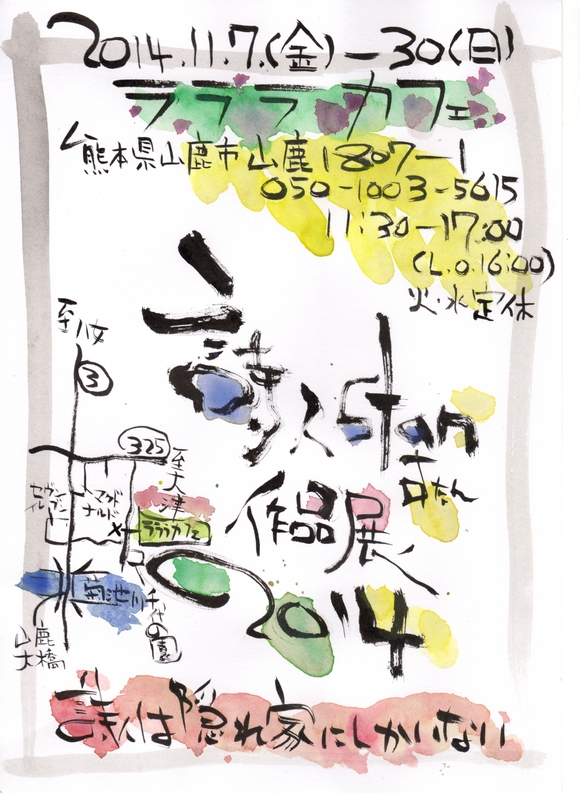 2014.11.7.(金)―30(日)
ラララカフェ
熊本県山鹿市山鹿1807―1
050-1003-5615
11:30-17:00
(L.O.16:00)
火・水定休
詩人stan
作品展
2014
至八女
3
325
至大津
セブンイレブン
マクドナルド
ラララカフェ
菊池川
千代の園
山鹿大橋
詩人は隠れ家にしかいない